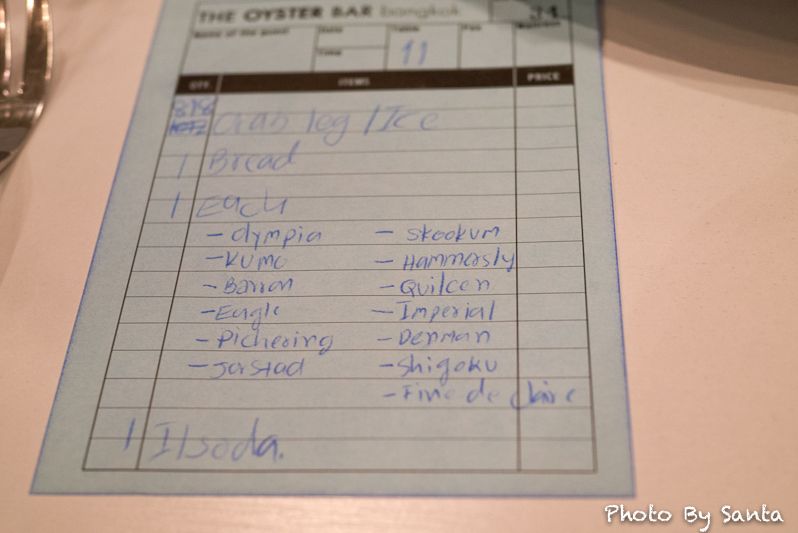 THE OYSTER BAR bangkok
Name of the guest Date Table Pax
Time 11
QTY. ITEMS PRICE
Crab leg / Ice
1 Bread
1 Each
- Olympia - Skookum
- Kumo - Hammersly
- Barron - Quilcen
- Eagle - Imperial
- Pickering - Denman
- Jorstad - Shigoku
- Fine de Claire
1 I/soda.
Photo By Santa